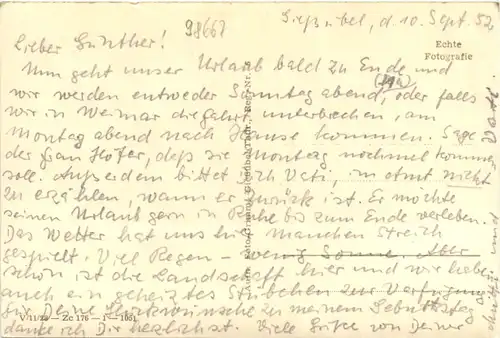 98667
Gießübel, d. 10. Sept. 52
Lieber Günther!
Echte
Fotografie
Nun geht unser Urlaub bald zu Ende und
wir werden entweder Sonntag abend, oder falls
wir in Weimar die Fahrt unterbrechen, am
Montag abend nach Hause kommen. Sage
der Frau Höfer, daß sie Montag nochmal kommen
soll. Außerdem bittet Dich Vati, im Amt nicht
zu erzählen, wann er zurück ist. Er möchte
seinen Urlaub gern in Ruhe bis zum Ende verleben.
Das Wetter hat uns hier manchen Streich
gespielt. Viel Regen – wenig Sonne. Aber
schön ist die Landschaft hier und wir haben
auch ein geheiztes Stübchen zur Verfügung
Für Deine Glückwünsche zu meinem Geburtstag
danke ich Dir herzlichst. Viele Grüße von Deiner
V/11/28 — Zc 176 — 1 — 1051